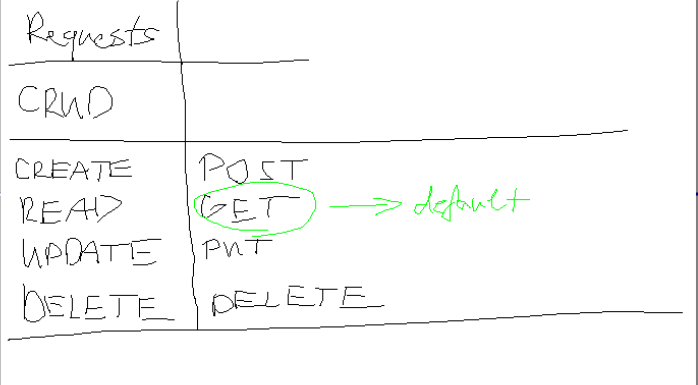 Requests
CRUD
CREATE POST
READ GET → default
UPDATE PUT
DELETE DELETE